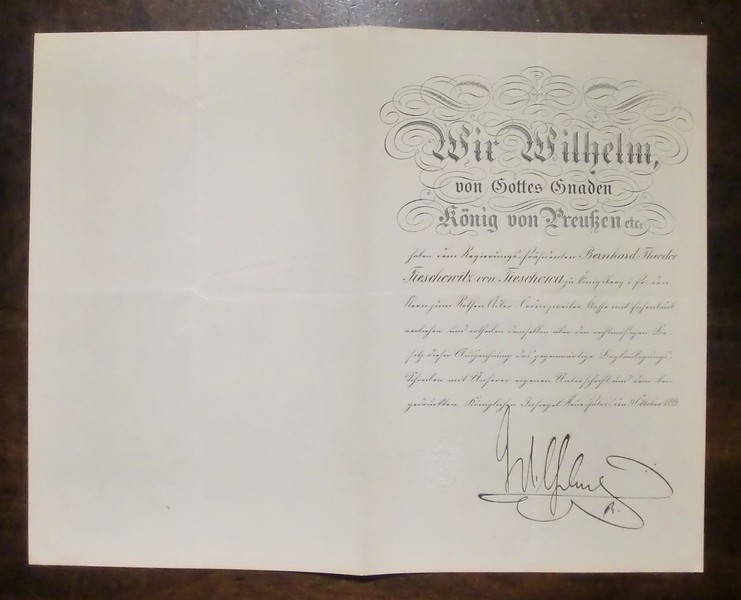 Wir Wilhelm,
von Gottes Gnaden
König von Preußen etc:
haben dem Regierungs-Präsidenten Bernhard Theodor
Tieschowitz von Tieschowa zu Königsberg i. Pr. den
Stern zum Rothen Adler-Orden zweiter Klasse mit Eichenlaub
verliehen und ertheilen demselben über den rechtmäßigen Be-
sitz dieser Auszeichnung das gegenwärtige Beglaubigungs-
Schreiben mit Unserer eigenen Unterschrift und dem bei-
gedruckten Königlichen Insiegel. Neues Palais, den Oktober
Wilhelm
R.